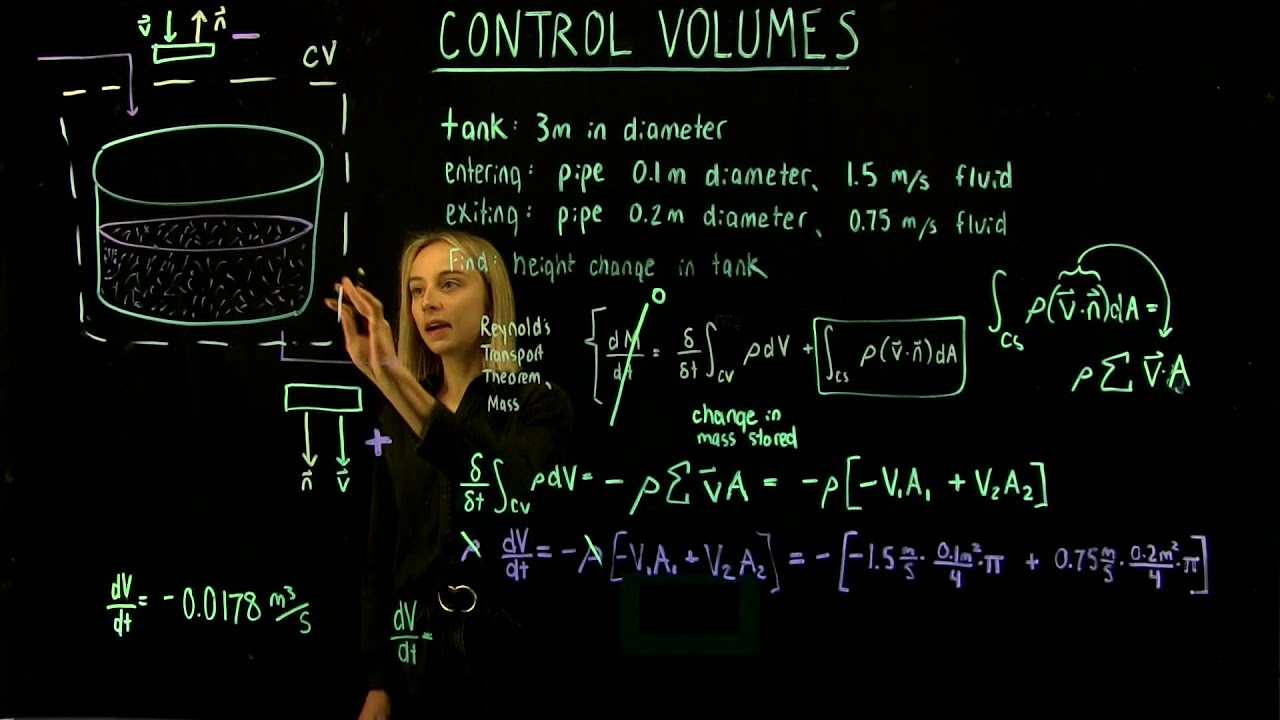 CONTROL VOLUMES
v⃗ n⃗ −
CV
tank: 3m in diameter
entering: pipe 0.1m diameter, 1.5 m/s fluid
exiting: pipe 0.2m diameter, 0.75 m/s fluid
Find: height change in tank
Reynold's
Transport
Theorem,
Mass
dM/dt = δ/δt ∫CV ρdV + ∫CS ρ(v⃗·n⃗)dA
0
change in
mass stored
∫CS ρ(v⃗·n⃗)dA =
ρ Σ v⃗·A
n⃗ v⃗ +
δ/δt ∫CV ρdV = - ρ Σ v⃗A = -ρ[-V₁A₁ + V₂A₂]
ρ dV/dt = -ρ[-V₁A₁ + V₂A₂] = -[-1.5 m/s · 0.1m²/4 · π + 0.75 m/s · 0.2m²/4 · π]
dV/dt = -0.0178 m³/s
dV/dt =